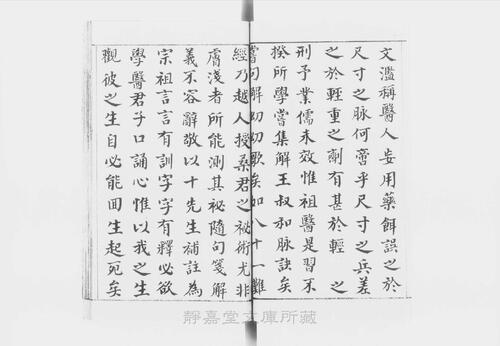 文濫稱醫人妄用藥餌誤之於
尺寸之脉何啻乎尺寸之兵差
之於輕重之劑有甚於輕 之
刑予業儒未效惟祖醫是習不
揆所學嘗集解王叔和脉訣矣
嘗句解幼幼歌矣如八十一難
經乃越人授桑君之秘術尤非
膚淺者所能測其祕隨句箋解
義不容辭敬以十先生補註為
宗祖言言有訓字字有釋必欲
學醫君子口誦心惟以我之生
觀彼之生自必能囬生起死矣
靜嘉堂文庫所藏